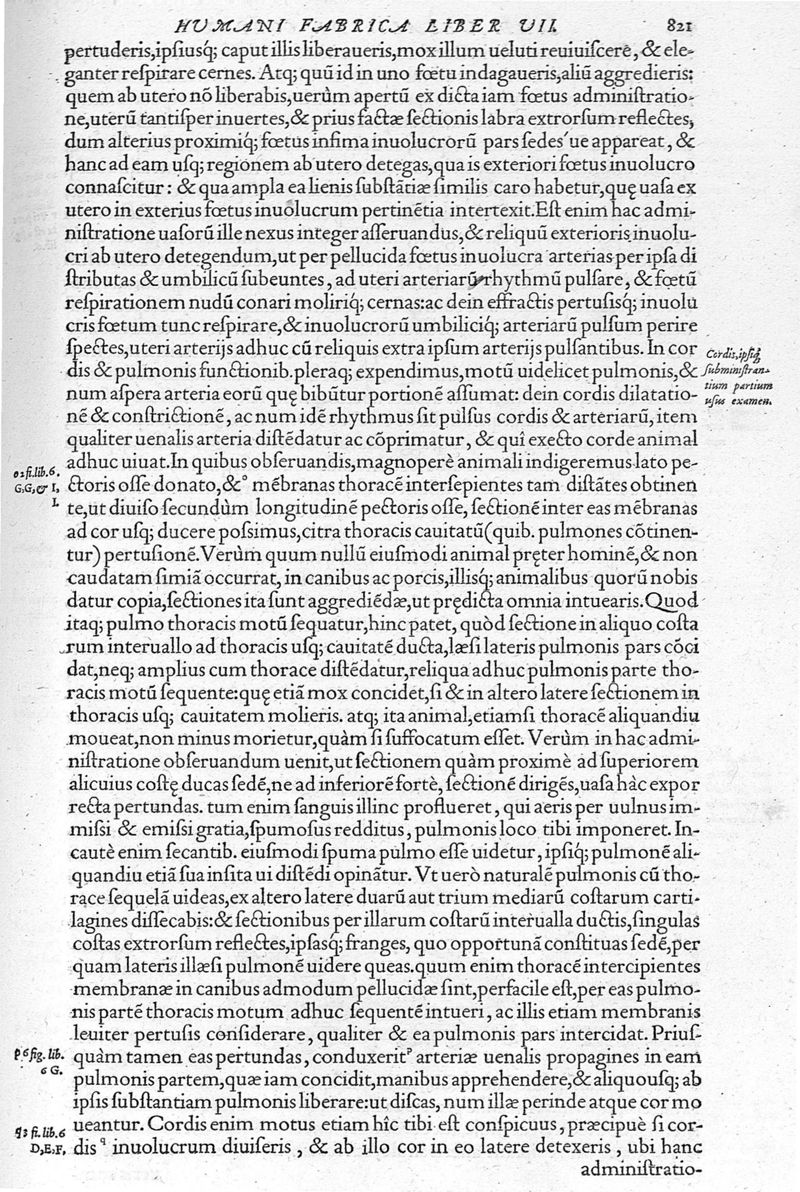 HVMANI FABRICA LIBER VII. 821
pertuderis,ipſiusq; caput illis liberaueris,mox illum ueluti reuiuiſcere, & ele-
ganter reſpirare cernes. Atq; quū id in uno fœtu indagaueris,aliū aggredieris:
quem ab utero nō liberabis,uerùm apertū ex dicta iam fœtus adminiſtratio-
ne,uterū tantiſper inuertes,& prius factæ ſectionis labra extrorſum reflectes,
dum alterius proximiq́; fœtus infima inuolucrorū pars ſedes'ue appareat, &
hanc ad eam uſq; regionem ab utero detegas,qua is exteriori fœtus inuolucro
connaſcitur: & qua ampla ea lienis ſubſtātiæ ſimilis caro habetur,quę uaſa ex
utero in exterius fœtus inuolucrum pertinētia intertexit.Eſt enim hac admi-
niſtratione uaſorū ille nexus integer aſſeruandus,& reliquū exterioris inuolu-
cri ab utero detegendum,ut per pellucida fœtus inuolucra arterias per ipſa di
ſtributas & umbilicū ſubeuntes, ad uteri arteriarū rhythmū pulſare, & fœtū
reſpirationem nudū conari moliriq́; cernas:ac dein effractis pertuſisq́; inuolu
cris fœtum tunc reſpirare,& inuolucrorū umbiliciq́; arteriarū pulſum perire
ſpectes,uteri arterijs adhuc cū reliquis extra ipſum arterijs pulſantibus. In cor
dis & pulmonis functionib.pleraq; expendimus,motū uidelicet pulmonis,&
Cordis,ipſiq́;
ſubminiſtran-
tium partium
uſus examen.
num aſpera arteria eorū quę bibūtur portionē aſſumat: dein cordis dilatatio-
nē & conſtrictionē, ac num idē rhythmus ſit pulſus cordis & arteriarū, item
qualiter uenalis arteria diſtēdatur ac cōprimatur, & quî execto corde animal
adhuc uiuat.In quibus obſeruandis,magnoperè animali indigeremus lato pe-
o 2 fi.lib.6.
G,G,& I,
I.
ctoris oſſe donato,&º mēbranas thoracē interſepientes tam diſtātes obtinen
te,ut diuiſo ſecundùm longitudinē pectoris oſſe, ſectionē inter eas mēbranas
ad cor uſq; ducere poſsimus,citra thoracis cauitatū(quib. pulmones cōtinen-
tur) pertuſionē.Verùm quum nullū eiuſmodi animal pręter hominē,& non
caudatam ſimiā occurrat, in canibus ac porcis,illisq́; animalibus quorū nobis
datur copia,ſectiones ita ſunt aggrediēdæ,ut prędicta omnia intuearis.Quod
itaq; pulmo thoracis motū ſequatur,hinc patet, quòd ſectione in aliquo coſta
rum interuallo ad thoracis uſq; cauitatē ducta,læſi lateris pulmonis pars cōci
dat,neq; amplius cum thorace diſtēdatur,reliqua adhuc pulmonis parte tho-
racis motū ſequente:quę etiā mox concidet,ſi & in altero latere ſectionem in
thoracis uſq; cauitatem molieris. atq; ita animal,etiamſi thoracē aliquandiu
moueat,non minus morietur,quàm ſi ſuffocatum eſſet. Verùm in hac admi-
niſtratione obſeruandum uenit,ut ſectionem quàm proximè ad ſuperiorem
alicuius coſtę ducas ſedē,ne ad inferiorē fortè, ſectionē dirigēs,uaſa hàc expor
recta pertundas. tum enim ſanguis illinc proflueret, qui aeris per uulnus im-
miſsi & emiſsi gratia,ſpumoſus redditus, pulmonis loco tibi imponeret. In-
cautè enim ſecantib. eiuſmodi ſpuma pulmo eſſe uidetur, ipſiq́; pulmonē ali-
quandiu etiā ſua inſita ui diſtēdi opinātur. Vt uerò naturalē pulmonis cū tho-
race ſequelā uideas,ex altero latere duarū aut trium mediarū coſtarum carti-
lagines diſſecabis:& ſectionibus per illarum coſtarū interualla ductis,ſingulas
coſtas extrorſum reflectes,ipſasq́; franges, quo opportunā conſtituas ſedē,per
quam lateris illæſi pulmonē uidere queas.quum enim thoracē intercipientes
membranæ in canibus admodum pellucidæ ſint,perfacile eſt,per eas pulmo-
nis partē thoracis motum adhuc ſequentē intueri, ac illis etiam membranis
leuiter pertuſis conſiderare, qualiter & ea pulmonis pars intercidat. Priuſ-
p 6 fig. lib.
6 G.
quàm tamen eas pertundas, conduxeritᵖ arteriæ uenalis propagines in eam
pulmonis partem,quæ iam concidit,manibus apprehendere,& aliquouſq; ab
ipſis ſubſtantiam pulmonis liberare:ut diſcas, num illæ perinde atque cor mo
q 3 fi.lib.6
D,E,F,
ueantur. Cordis enim motus etiam hîc tibi eſt conſpicuus, præcipuè ſi cor-
dis q inuolucrum diuiſeris, & ab illo cor in eo latere detexeris, ubi hanc
adminiſtratio-